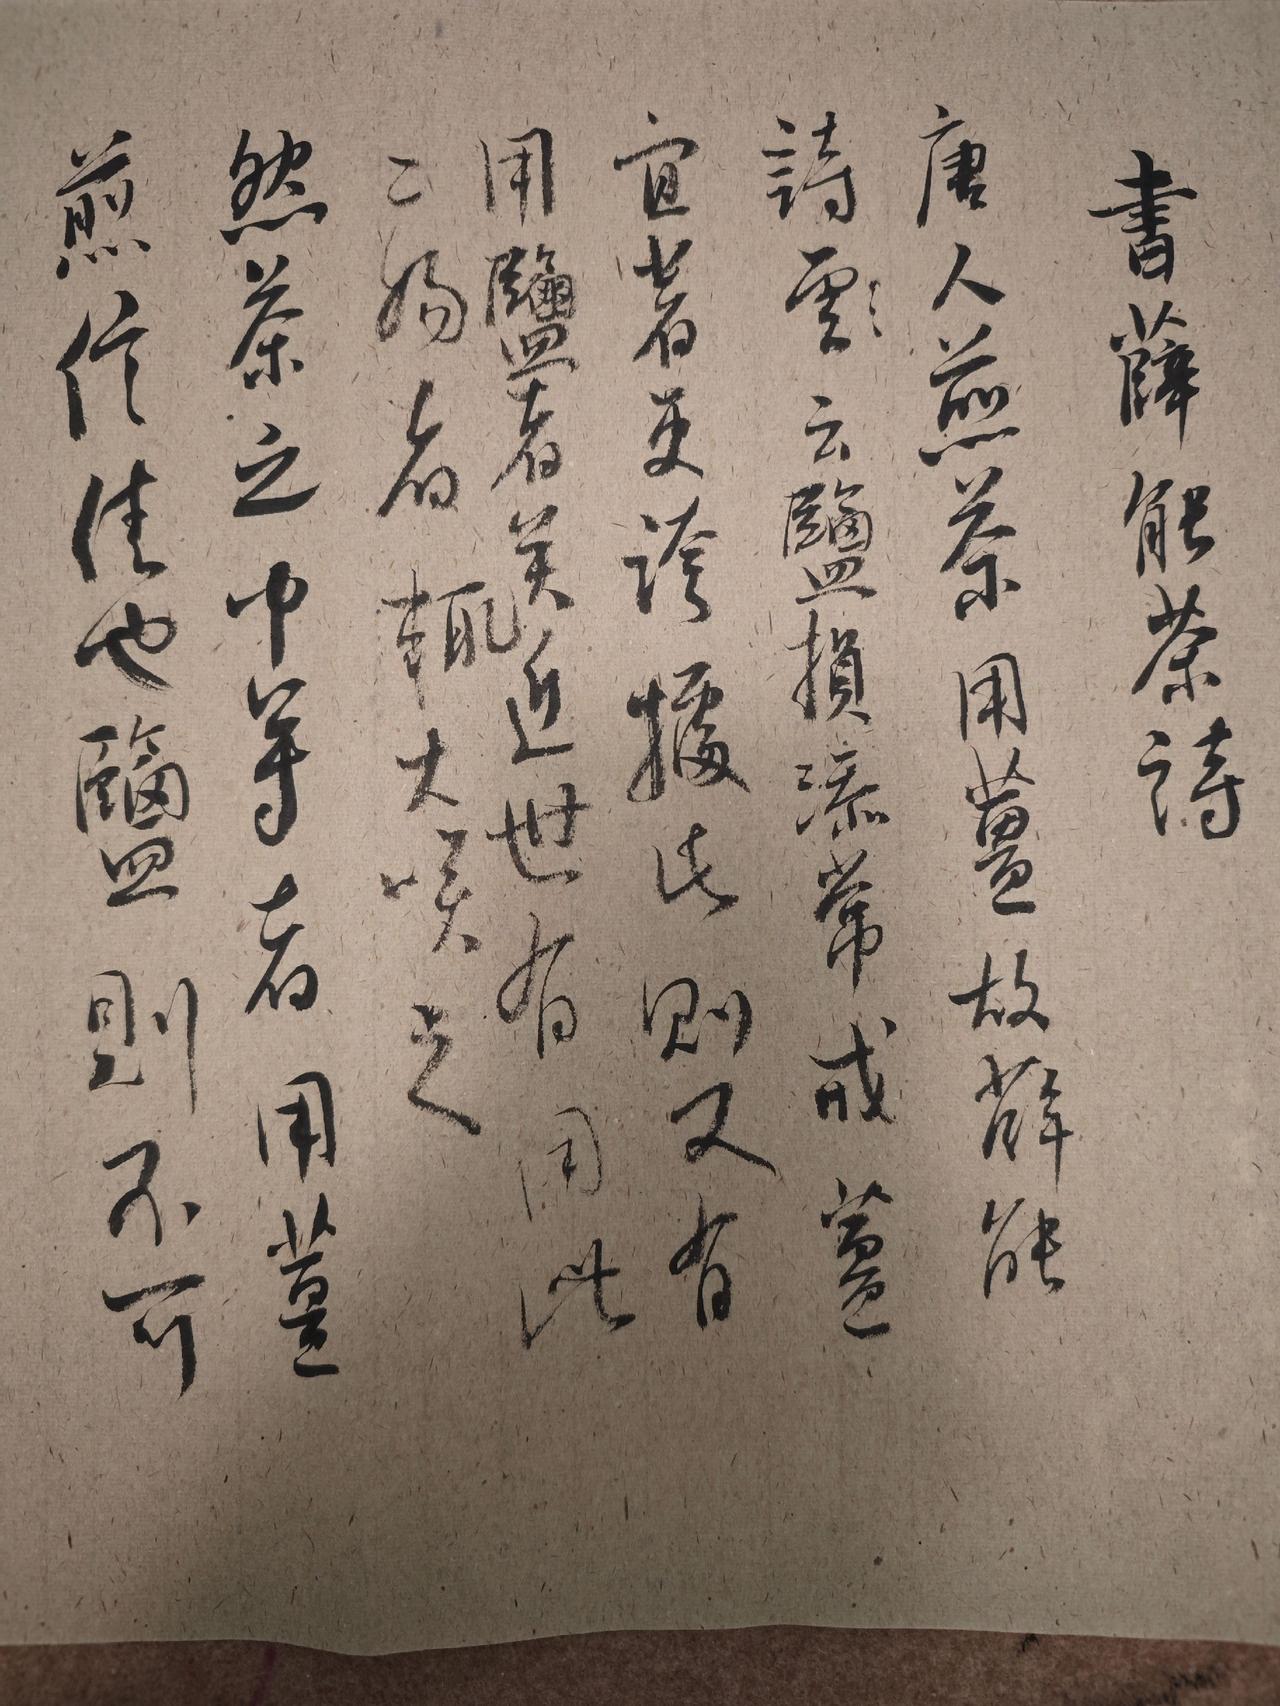 書薛能茶詩
唐人煎茶用薑故薛能
詩雲云鹽損添常戒薑
宜著更誇據此則又有
用鹽者矣近世有用此
二物者輒大笑之
然茶之中等者用薑
煎信佳也鹽則不可